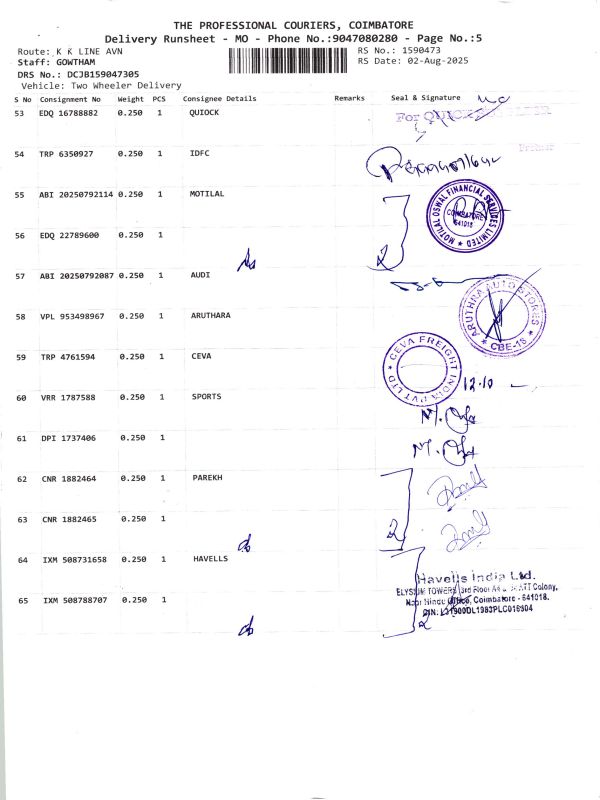 THE PROFESSIONAL COURIERS, COIMBATORE
Delivery Runsheet - MO - Phone No.:9047080280 - Page No.:5
Route: K K LINE AVN
RS No.: 1590473
Staff: GOWTHAM
RS Date: 02-Aug-2025
DRS No.: DCJB159047305
Vehicle: Two Wheeler Delivery
S No Consignment No Weight PCS Consignee Details Remarks Seal & Signature
53 EDQ 16788882 0.250 1 QUIOCK
For
54 TRP 6350927 0.250 1 IDFC
55 ABI 20250792114 0.250 1 MOTILAL
MOTILAL OSWAL FINANCIAL SERVICES LIMITED
COIMBATORE
641018
56 EDQ 22789600 0.250 1
2
57 ABI 20250792087 0.250 1 AUDI
58 VPL 953498967 0.250 1 ARUTHARA
ARUTHRA AUTO STORES
CBE-18
59 TRP 4761594 0.250 1 CEVA
CEVA FREIGHT INDIA PVT LTD
12.10
60 VRR 1787588 0.250 1 SPORTS
61 DPI 1737406 0.250 1
62 CNR 1882464 0.250 1 PAREKH
63 CNR 1882465 0.250 1
2
64 IXM 508731658 0.250 1 HAVELLS
Havells India Ltd.
ELYSIUM TOWERS 3rd Floor Colony,
Near Hindu Office, Coimbatore - 641018.
65 IXM 508788707 0.250 1
2